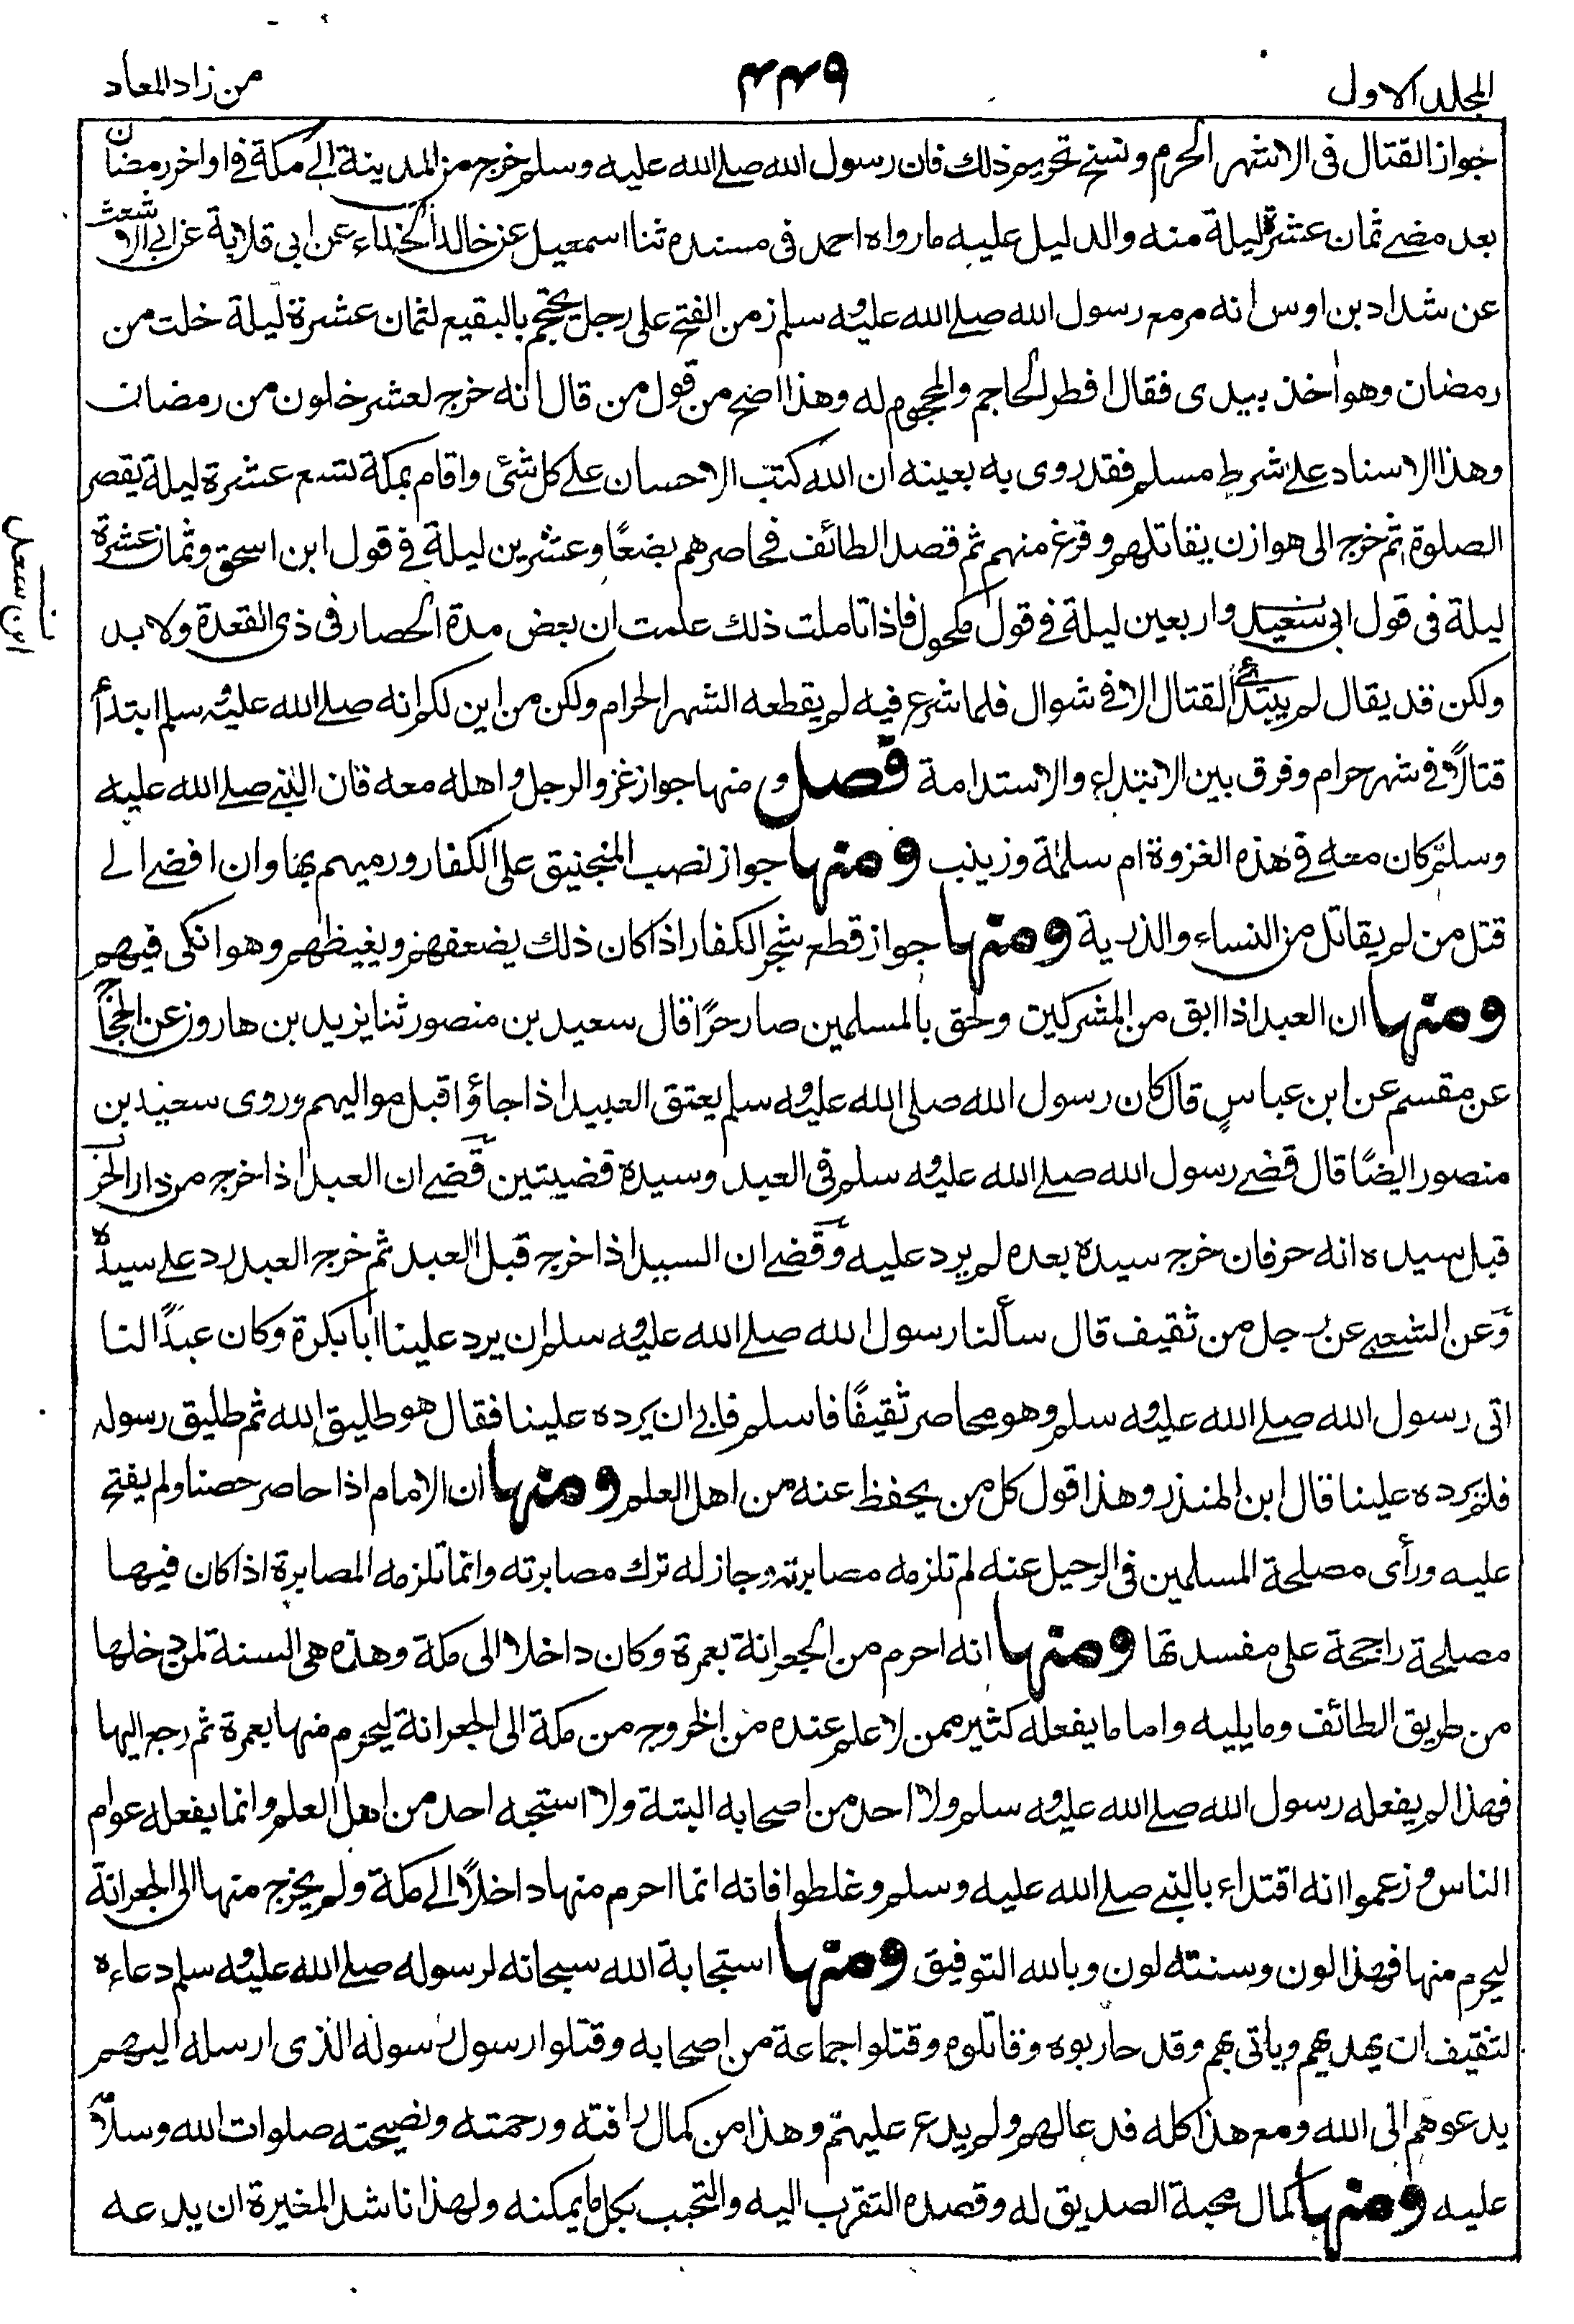 المجلد الاول
٤٤٩
من زاد المعاد
جواز القتال فى الاشهر الحرم ونسخ تحريم ذلك فان رسول الله صلے الله عليه وسلم خرج من المدينة الے مكة فے اواخر رمضان
بعد مضے ثمان عشرة ليلة منه والدليل عليه ما رواه احمد فى مسنده ثنا اسمعيل عن خالد الحذاء عن ابى قلابة عن ابى الاشعث
عن شداد بن اوس انه مر مع رسول الله صلے الله عليه وسلم زمن الفتح على رجل يحتجم بالبقيع لثمان عشرة ليلة خلت من
رمضان وهو اخذ بيدى فقال افطر الحاجم والمحجوم له وهذا اصح من قول من قال انه خرج لعشر خلون من رمضان
وهذا الاسناد علے شرط مسلم فقد روى به بعينه ان الله كتب الاحسان علے كل شئى واقام بمكة تسع عشرة ليلة يقصر
الصلوة ثم خرج الى هوازن يقاتلهم وفرغ منهم ثم قصد الطائف فحاصرهم بضعًا وعشرين ليلة فے قول ابن اسحق وثمان عشرة
ليلة فى قول ابى سعيد واربعين ليلة فے قول مكحول فاذا تاملت ذلك علمت ان بعض مدة الحصار فى ذى القعدة ولا بد
ابن سعد
ولكن قد يقال لم يبتدئ القتال الا فے شوال فلما شرع فيه لم يقطعه الشهر الحرام ولكن من اين لكم انه صلے الله عليه وسلم ابتدأ
قتالًا فے شهر حرام وفرق بين الابتداء والاستدامة فصل ومنها جواز غزو الرجل واهله معه فان النبے صلے الله عليه
وسلم كان معه فے هذه الغزوة ام سلمة وزينب ومنها جواز نصب المنجنيق على الكفار ورميهم بها وان افضے الے
قتل من لم يقاتل من النساء والذرية ومنها جواز قطع شجر الكفار اذا كان ذلك يضعفهم ويغيظهم وهو انكى فيهم
ومنها ان العبد اذا ابق من المشركين ولحق بالمسلمين صار حرًا قال سعيد بن منصور ثنا يزيد بن هارون عن الحجاج
عن مقسم عن ابن عباسٍ قال كان رسول الله صلى الله عليه وسلم يعتق العبيد اذا جاؤا قبل مواليهم وروى سعيد بن
منصور ايضًا قال قضے رسول الله صلے الله عليه وسلم فى العبد وسيده قضيتين قضے ان العبد اذا خرج من دار الحرب
قبل سيده انه حر فان خرج سيده بعده لم يرد عليه وقضے ان السيد اذا خرج قبل العبد ثم خرج العبد رد علے سيده
وعن الشعبے عن رجل من ثقيف قال سألنا رسول الله صلے الله عليه وسلم ان يرد علينا ابا بكرة وكان عبدًا لنا
اتى رسول الله صلے الله عليه وسلم وهو محاصر ثقيفًا فاسلم فابى ان يرده علينا فقال هو طليق الله ثم طليق رسوله
فلم يرده علينا قال ابن المنذر وهذا قول كل من يحفظ عنه من اهل العلم ومنها ان الامام اذا حاصر حصنا ولم يفتح
عليه ورأى مصلحة المسلمين فى الرحيل عنه لم تلزمه مصابرته وجاز له ترك مصابرته وانما تلزمه المصابرة اذا كان فيها
مصلحة راجحة على مفسدتها ومنها انه احرم من الجعرانة بعمرة وكان داخلا الى مكة وهذه هى السنة لمن دخلها
من طريق الطائف وما يليه واما ما يفعله كثير ممن لا علم عنده من الخروج من مكة الى الجعرانة ليحرم منها بعمرة ثم رجع اليها
فهذا لم يفعله رسول الله صلے الله عليه وسلم ولا احد من اصحابه البتة ولا استحبه احد من اهل العلم وانما يفعله عوام
الناس وزعموا انه اقتداء بالنبے صلے الله عليه وسلم وغلطوا فانه انما احرم منها داخلًا الے مكة ولم يخرج منها الى الجعرانة
ليحرم منها فهذا لون وسنته لون وبالله التوفيق ومنها استجابة الله سبحانه لرسوله صلے الله عليه وسلم دعاءه
لثقيف ان يهديهم وياتى بهم وقد حاربوه وقاتلوه وقتلوا جماعة من اصحابه وقتلوا رسول رسوله الذى ارسله اليهم
يدعوهم الى الله ومع هذا كله فدعا لهم ولم يدع عليهم وهذا من كمال رافته ورحمته ونصيحته صلوات الله وسلامه
عليه ومنها كمال محبة الصديق له وقصده التقرب اليه والتحبب بكل ما يمكنه ولهذا ناشد المغيرة ان يدعه